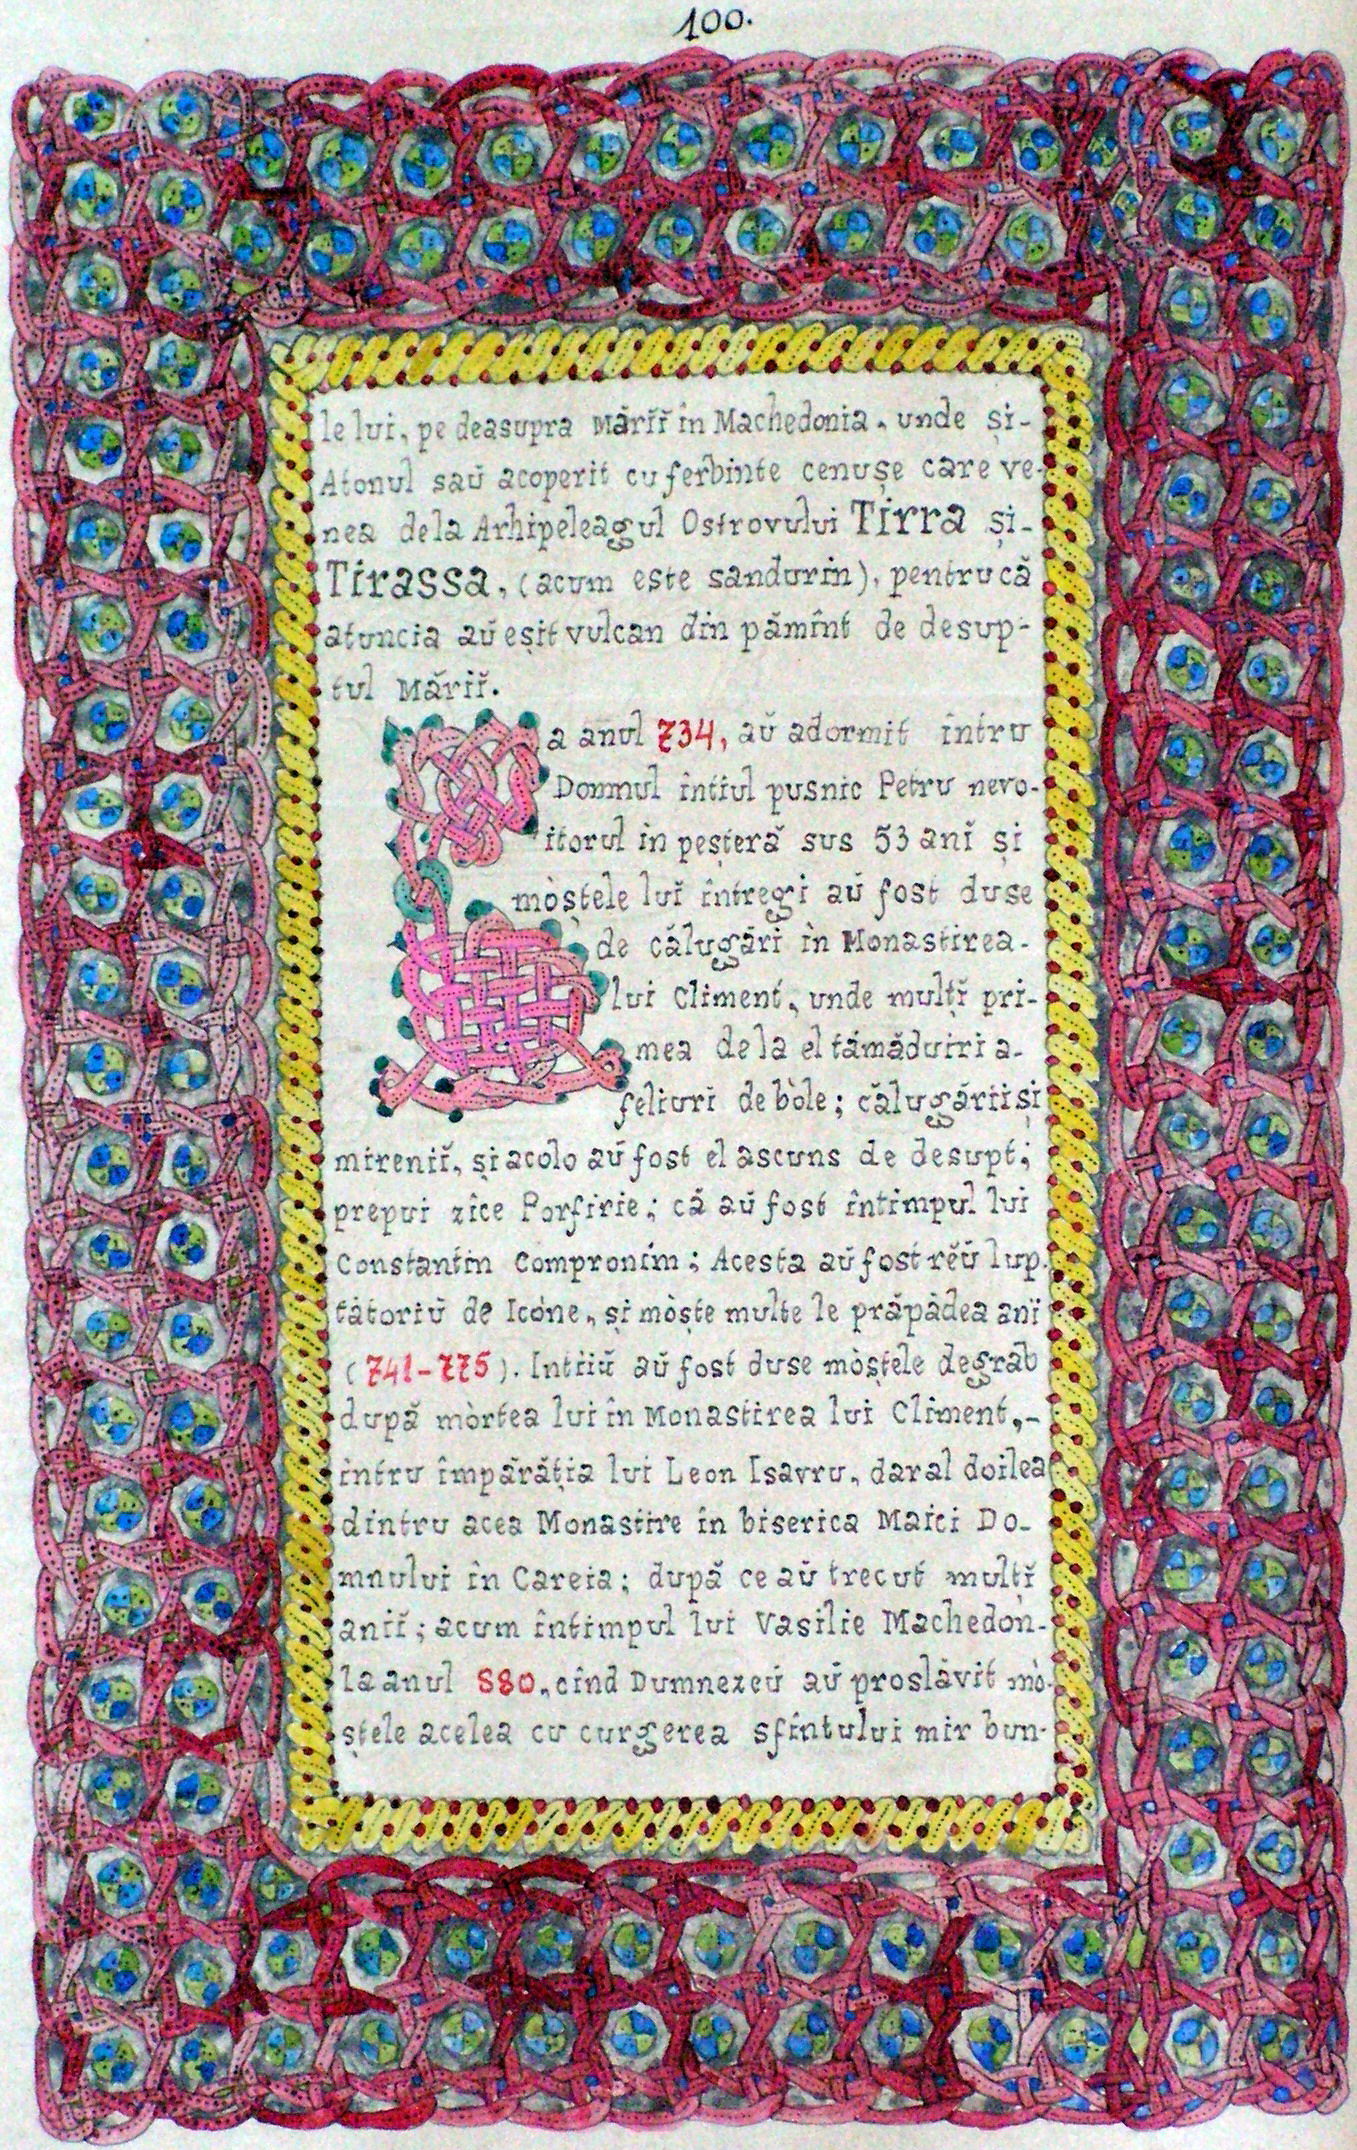 100.
le lui, pe deasupra Mării̇̆ în Machedonia, unde și-
Atonul saŭ acoperit cu ferbinte cenușe care ve-
nea dela Arhipeleagul Ostrovului Tirra și-
Tirassa, (acum este sandurin), pentru că
atuncia aŭ eșit vulcan din pămînt de desup-
tul Măriĭ.
La anul 734, aŭ adormit întru
Domnul intiul pusnic Petru nevo-
itorul in peșteră sus 53 ani și
mòștele luĭ întregi aŭ fost duse
de călugări in Monastirea-
lui Climent, unde mulțĭ pri-
mea dela el tămăduiri a-
feliuri de bòle; călugării si
mireniĭ, și acolo aŭ fost el ascuns de desupt;
prepui zice Porfirie; că aŭ fost întimpul lui
Constantin Compronim; Acesta aŭ fost rĕŭ lup.
tătoriŭ de Icòne, și mòște multe le prăpădea anĭ
(741-775). Intiiŭ aŭ fost duse mòștele degrab
după mòrtea lui în Monastirea lui Climent,-
intru împărăția lui Leon Isavru, dar al doilea
dintru acea Monastire în biserica Maici Do-
mnului în Careia; după ce aŭ trecut mulțĭ
aniĭ; acum întimpul lui Vasilie Machedon-
La anul 880, cînd Dumnezeŭ aŭ proslăvit mò-
ștele acelea cu curgerea sfîntului mir bun-